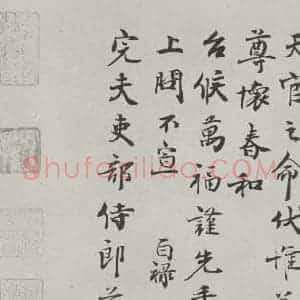 天官之命伏惟
尊懷春和
台候萬福謹先
上問不宣 百祿
完夫吏部侍郎
Shufaziliao.COM